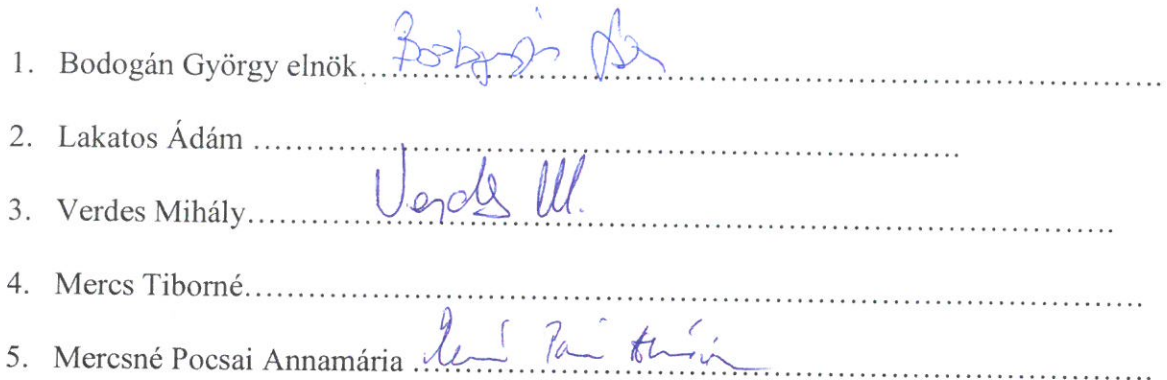 1. Bodogán György elnök....................
2. Lakatos Ádám ....................
3. Verdes Mihály.................... Verdes M.
4. Mercs Tiborné....................
5. Mercsné Pocsai Annamária ....................